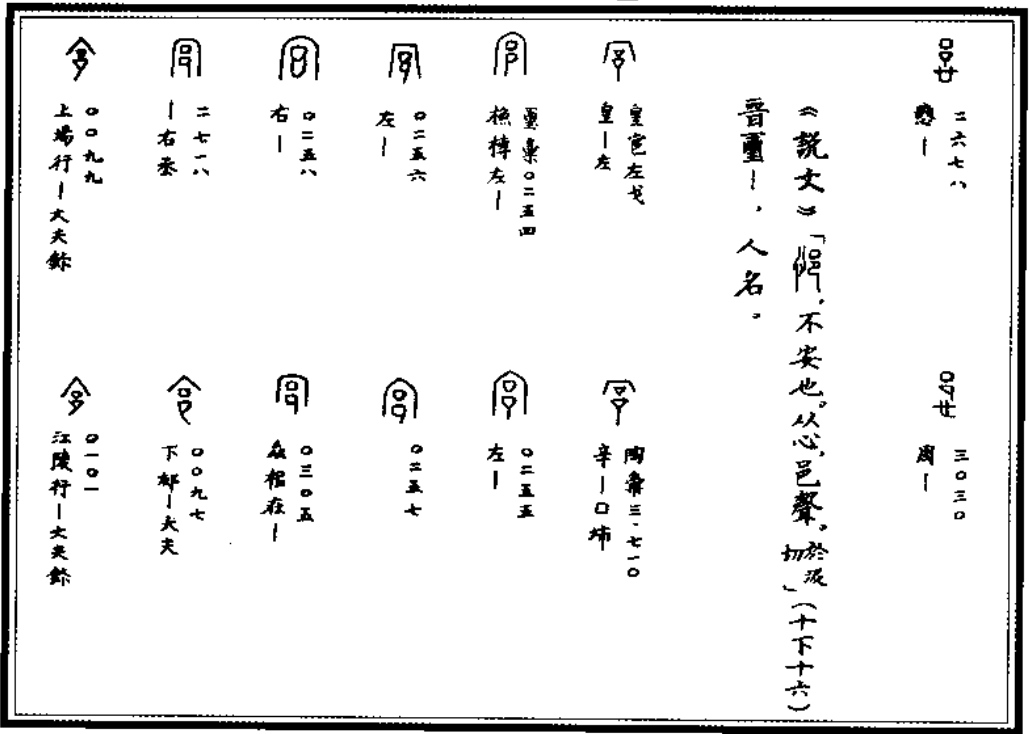 二六七八
戀丨
三〇三〇
周丨
《說文》「悒,不安也。从心,邑聲。於汲切」(十下十六)
晉璽丨,人名。
皇宮左戈
皇丨左
陶彙三·七一〇
辛丨口㘵
璽彙〇二五四
左丨
〇二五五
左丨
〇二五六
左丨
〇二五七
〇二五八
右丨
〇三〇五
在丨
二七一八
丨右丞
〇〇九七
下丨大夫
〇〇九九
上場行丨大夫鉨
〇一〇一
江陵行丨大夫鉨